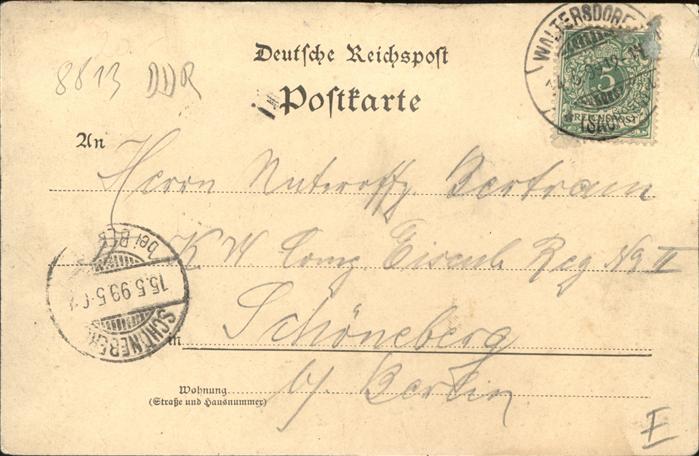 8813 DDR
Deutsche Reichspost
Postkarte
WALTERSDORF
(SACHSEN)
5
REICHSPOST
An
Herrn Unteroffz. Bertram
K W Comp. Eisenb. Reg No II
SCHÖNEBERG
bei BER
15.5.99.5-6
in Schöneberg
b/ Berlin
Wohnung
(Straße und Hausnummer)
E